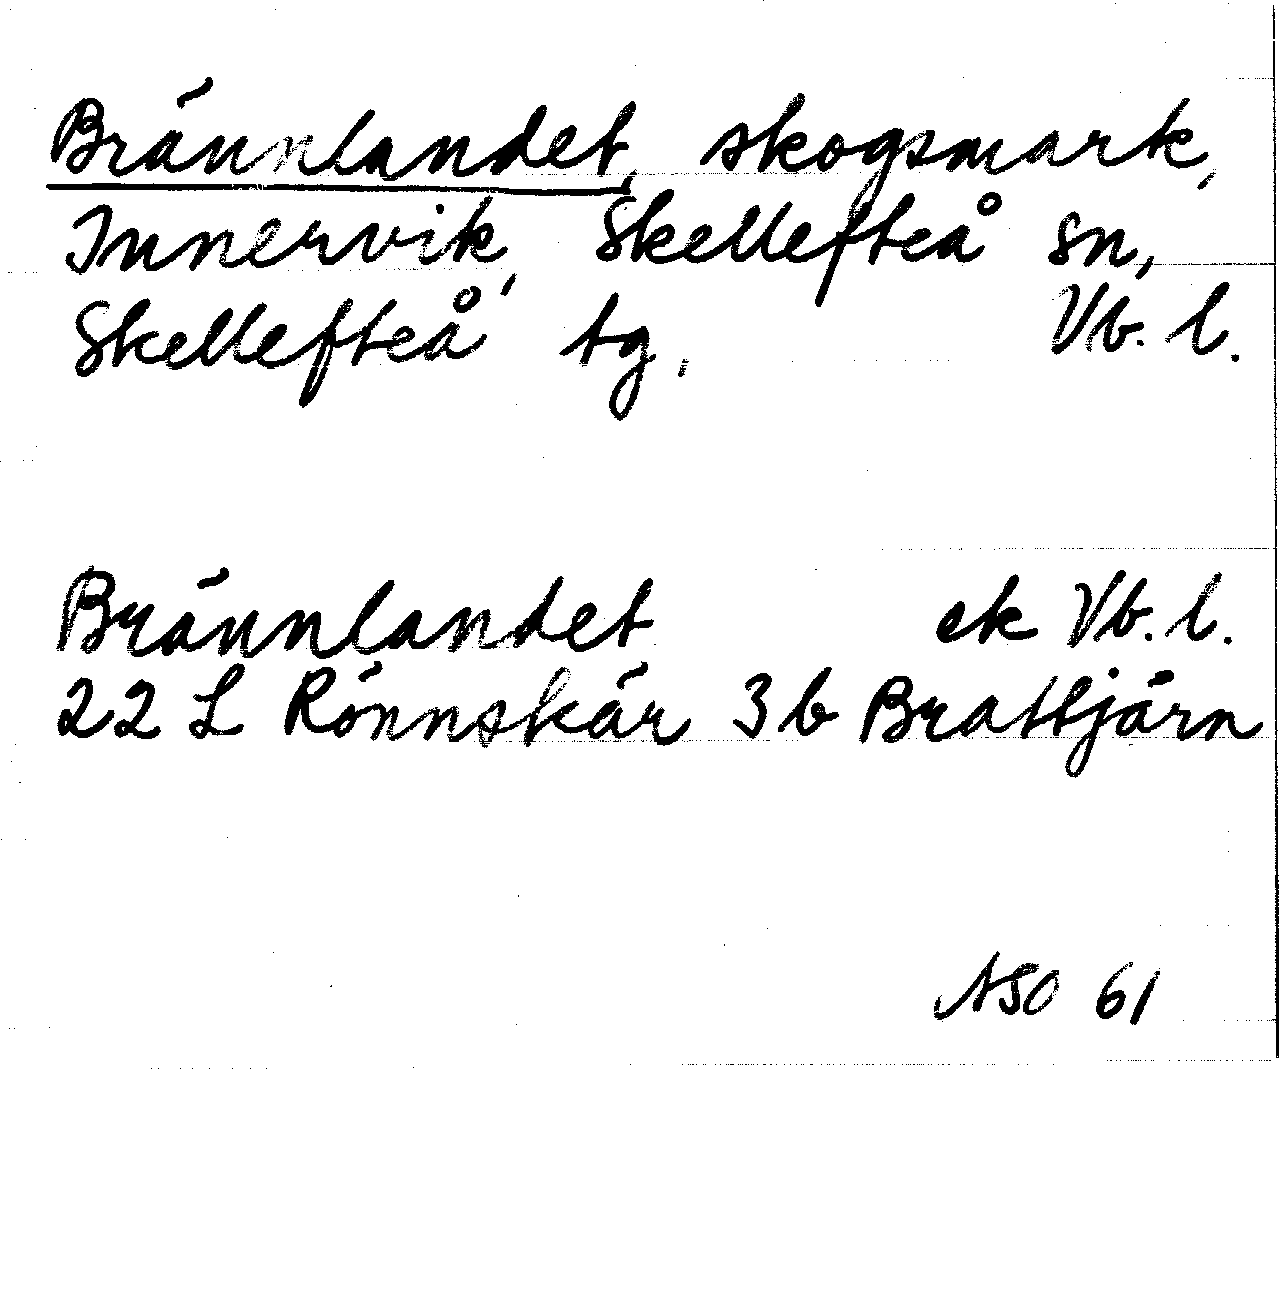 Brännlandet, skogsmark,
Innervik, Skellefteå sn,
Skellefteå tg, Vb. l.
Brännlandet ek Vb. l.
22 L Rönnskär 3 b Brattjärn
ASO 61